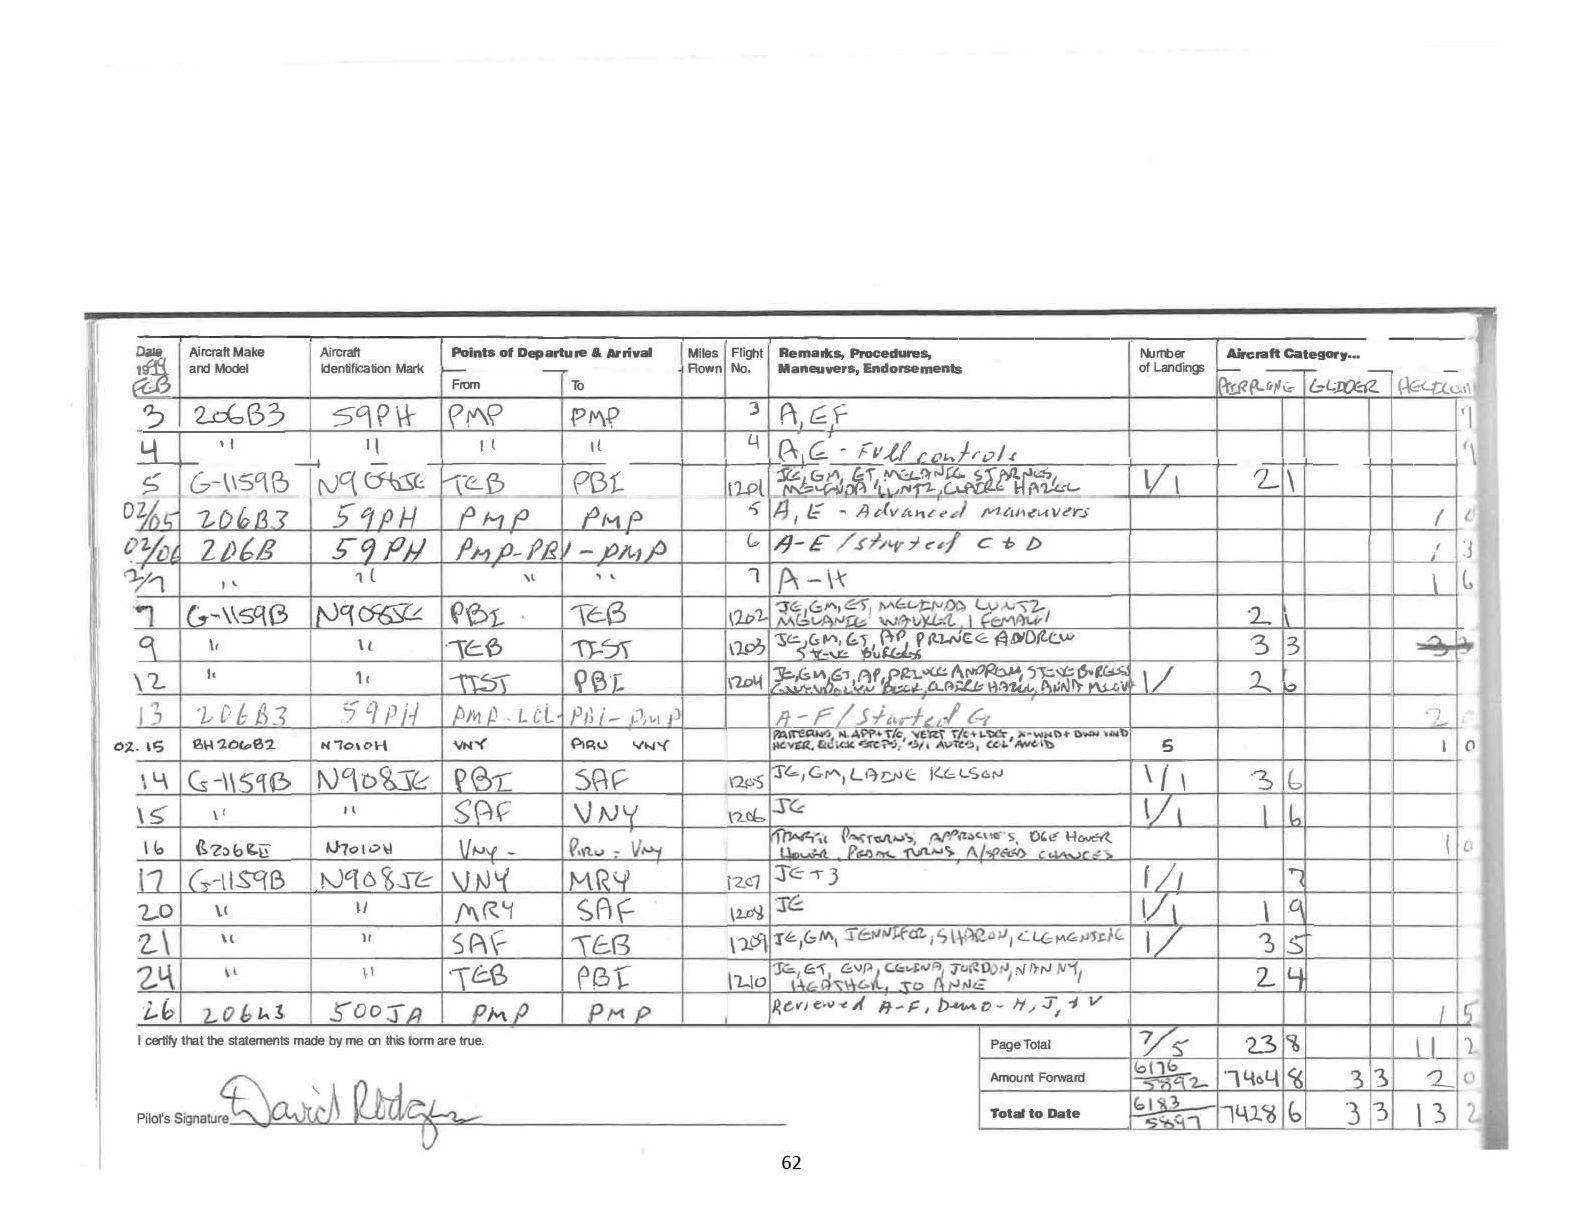 Date Aircraft Make Aircraft Points of Departure & Arrival Miles Flight Remarks, Procedures, Number Aircraft Category...
1999 and Model Identification Mark Flown No. Maneuvers, Endorsements of Landings
FEB From To AIRPLANE GLIDER
3 206B3 59PH PMP PMP 3 A, E, F 7
4 " " " " 4 A, E - Full controls 9
5 G-1159B N908JE TEB PBI 1201 JE, GM, ET, MELANIE STARNES, 1/1 2 1
MELINDA LUNTZ, CLAIRE HAZEL
02/05 206B3 59PH PMP PMP 5 A, E - Advanced Maneuvers 1 0
02/06 206B 59PH PMP-PBI-PMP 6 A-E / Started C & D 1 3
2/7 " " " " 7 A-H 1 6
7 G-1159B N908JE PBI TEB 1202 JE, GM, ET, MELINDA LUNTZ, 2 1
MELANIE WALKER, 1 FEMALE
9 " " TEB TIST 1203 JE, GM, ET, AP, PRINCE ANDREW 3 3
STEVE BURGESS
12 " " TIST PBI 1204 JE, GM, ET, AP, PRINCE ANDREW, STEVE BURGESS 1/ 2 6
GWENDOLYN BECK, CLAIRE HAZEL, ANNA
13 206B3 59PH PMP-LCL-PBI-PMP A-F / Started G 2 0
02.15 BH206B2 N7010H VNY PIRU VNY PATTERNS, N. APP + T/O, VERT T/O + LDG, X-WND + DWN WND 5 1 0
HOVER, QUICK STOPS, AUTOS, COL AVOID
14 G-1159B N908JE PBI SAF 1205 JE, GM, LAINE KELSON 1/1 3 6
15 " " SAF VNY 1206 JE 1/1 1 6
16 B206BII N7010H VNY - PIRU - VNY TRAFFIC PATTERNS, APPROCHES, OGE HOVER 1 0
HOVER, PEDAL TURNS, A/SPEED CHANGES
17 G-1159B N908JE VNY MRY 1207 JE + 3 1/1 7
20 " " MRY SAF 1208 JE 1/1 1 9
21 " " SAF TEB 1209 JE, GM, JENNIFER, SHARON, CLEMENTINE 1/ 3 5
24 " " TEB PBI 1210 JE, ET, EVA, CELINA, JORDON, NANNY, 2 4
HEATHER, JO ANNE
26 206L3 500JA PMP PMP Reviewed A-F, Demo - H, J, & V 1 5
I certify that the statements made by me on this form are true. Page Total 7/5 23 8 11 2
Amount Forward 6176/5892 7404 8 3 3 2 0
Pilot's Signature David Rodgers Total to Date 6183/5897 7428 6 3 3 13 2
62